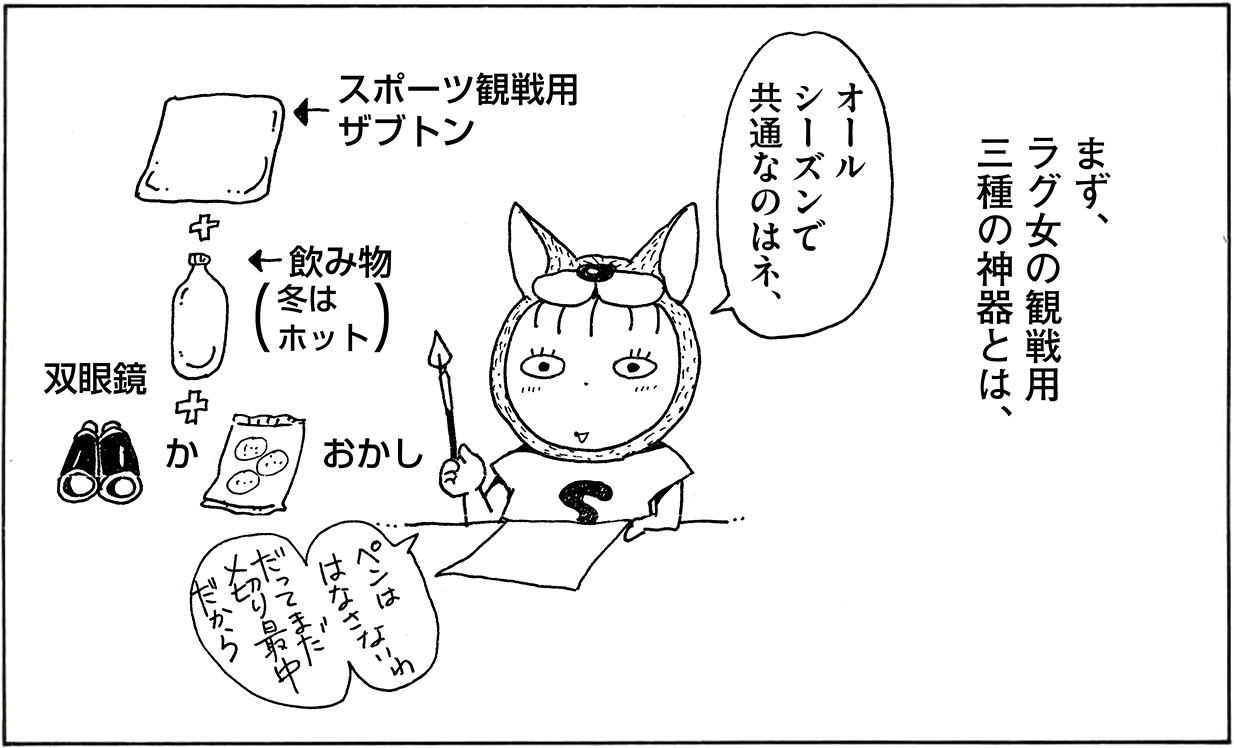 まず、
ラグ女の観戦用
三種の神器とは、
オール
シーズンで
共通なのはネ、
スポーツ観戦用
ザブトン
飲み物
(冬は
ホット)
双眼鏡
か
おかし
ペンは
はなさないわ
だってまだ
〆切り最中
だから